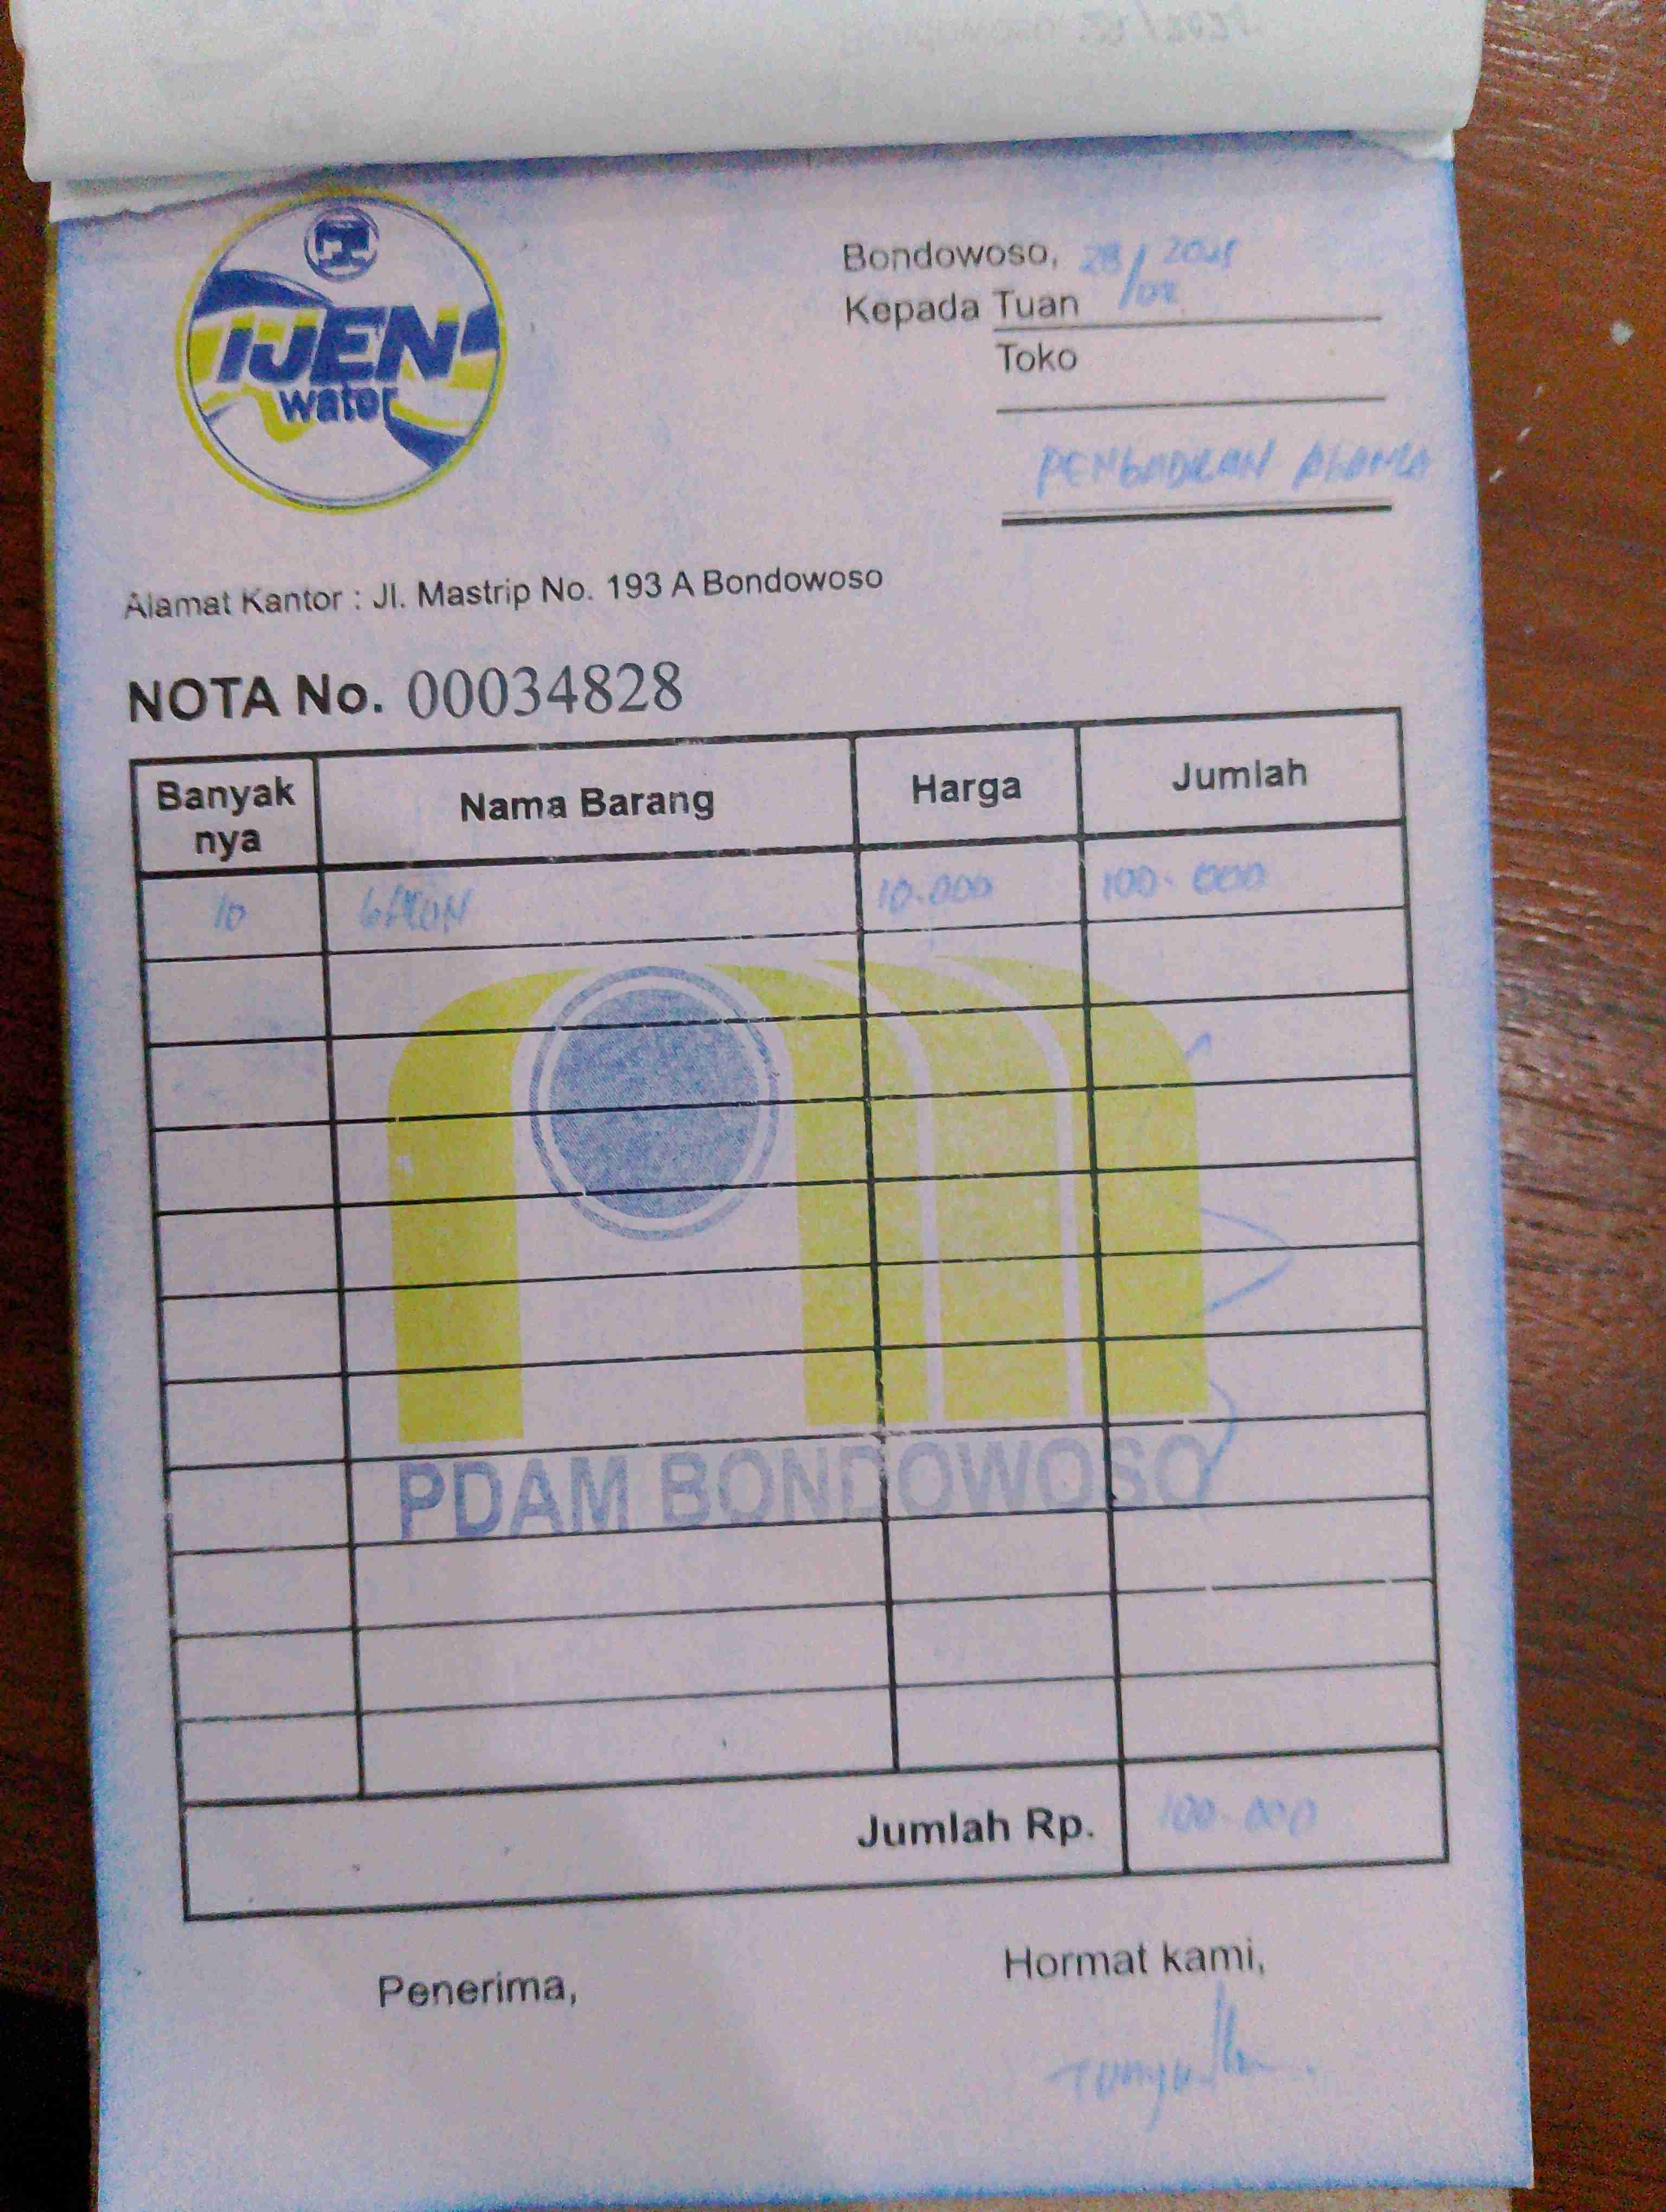 IJEN
water
Bondowoso, 28/02 2025
Kepada Tuan
Toko
PENGADILAN AGAMA
Alamat Kantor : Jl. Mastrip No. 193 A Bondowoso
NOTA No. 00034828
Banyak nya Nama Barang Harga Jumlah
10 GALON 10.000 100.000
PDAM BONDOWOSO
Jumlah Rp. 100.000
Penerima, Hormat kami,